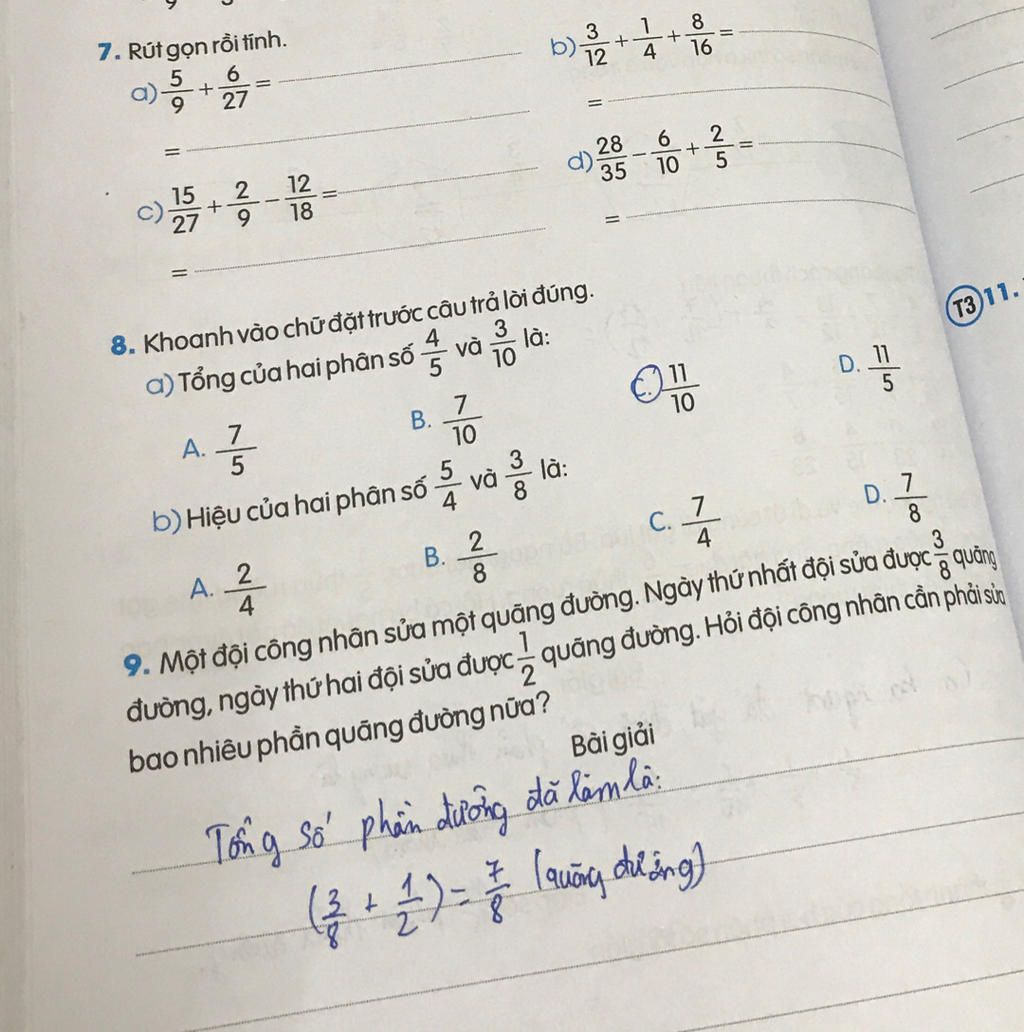 7. Rút gọn rồi tính.
a) 5/9 + 6/27 =
b) 3/12 + 1/4 + 8/16 =
=
=
c) 15/27 + 2/9 - 12/18 =
d) 28/35 - 6/10 + 2/5 =
=
=
8. Khoanh vào chữ đặt trước câu trả lời đúng.
a) Tổng của hai phân số 4/5 và 3/10 là:
A. 7/5 B. 7/10 C. 11/10 D. 11/5
b) Hiệu của hai phân số 5/4 và 3/8 là:
A. 2/4 B. 2/8 C. 7/4 D. 7/8
9. Một đội công nhân sửa một quãng đường. Ngày thứ nhất đội sửa được 3/8 quãng
đường, ngày thứ hai đội sửa được 1/2 quãng đường. Hỏi đội công nhân cần phải sửa
bao nhiêu phần quãng đường nữa?
Bài giải
Tổng số phần đường đã làm là:
(3/8 + 1/2) = 7/8 (quãng đường)
T3 11.